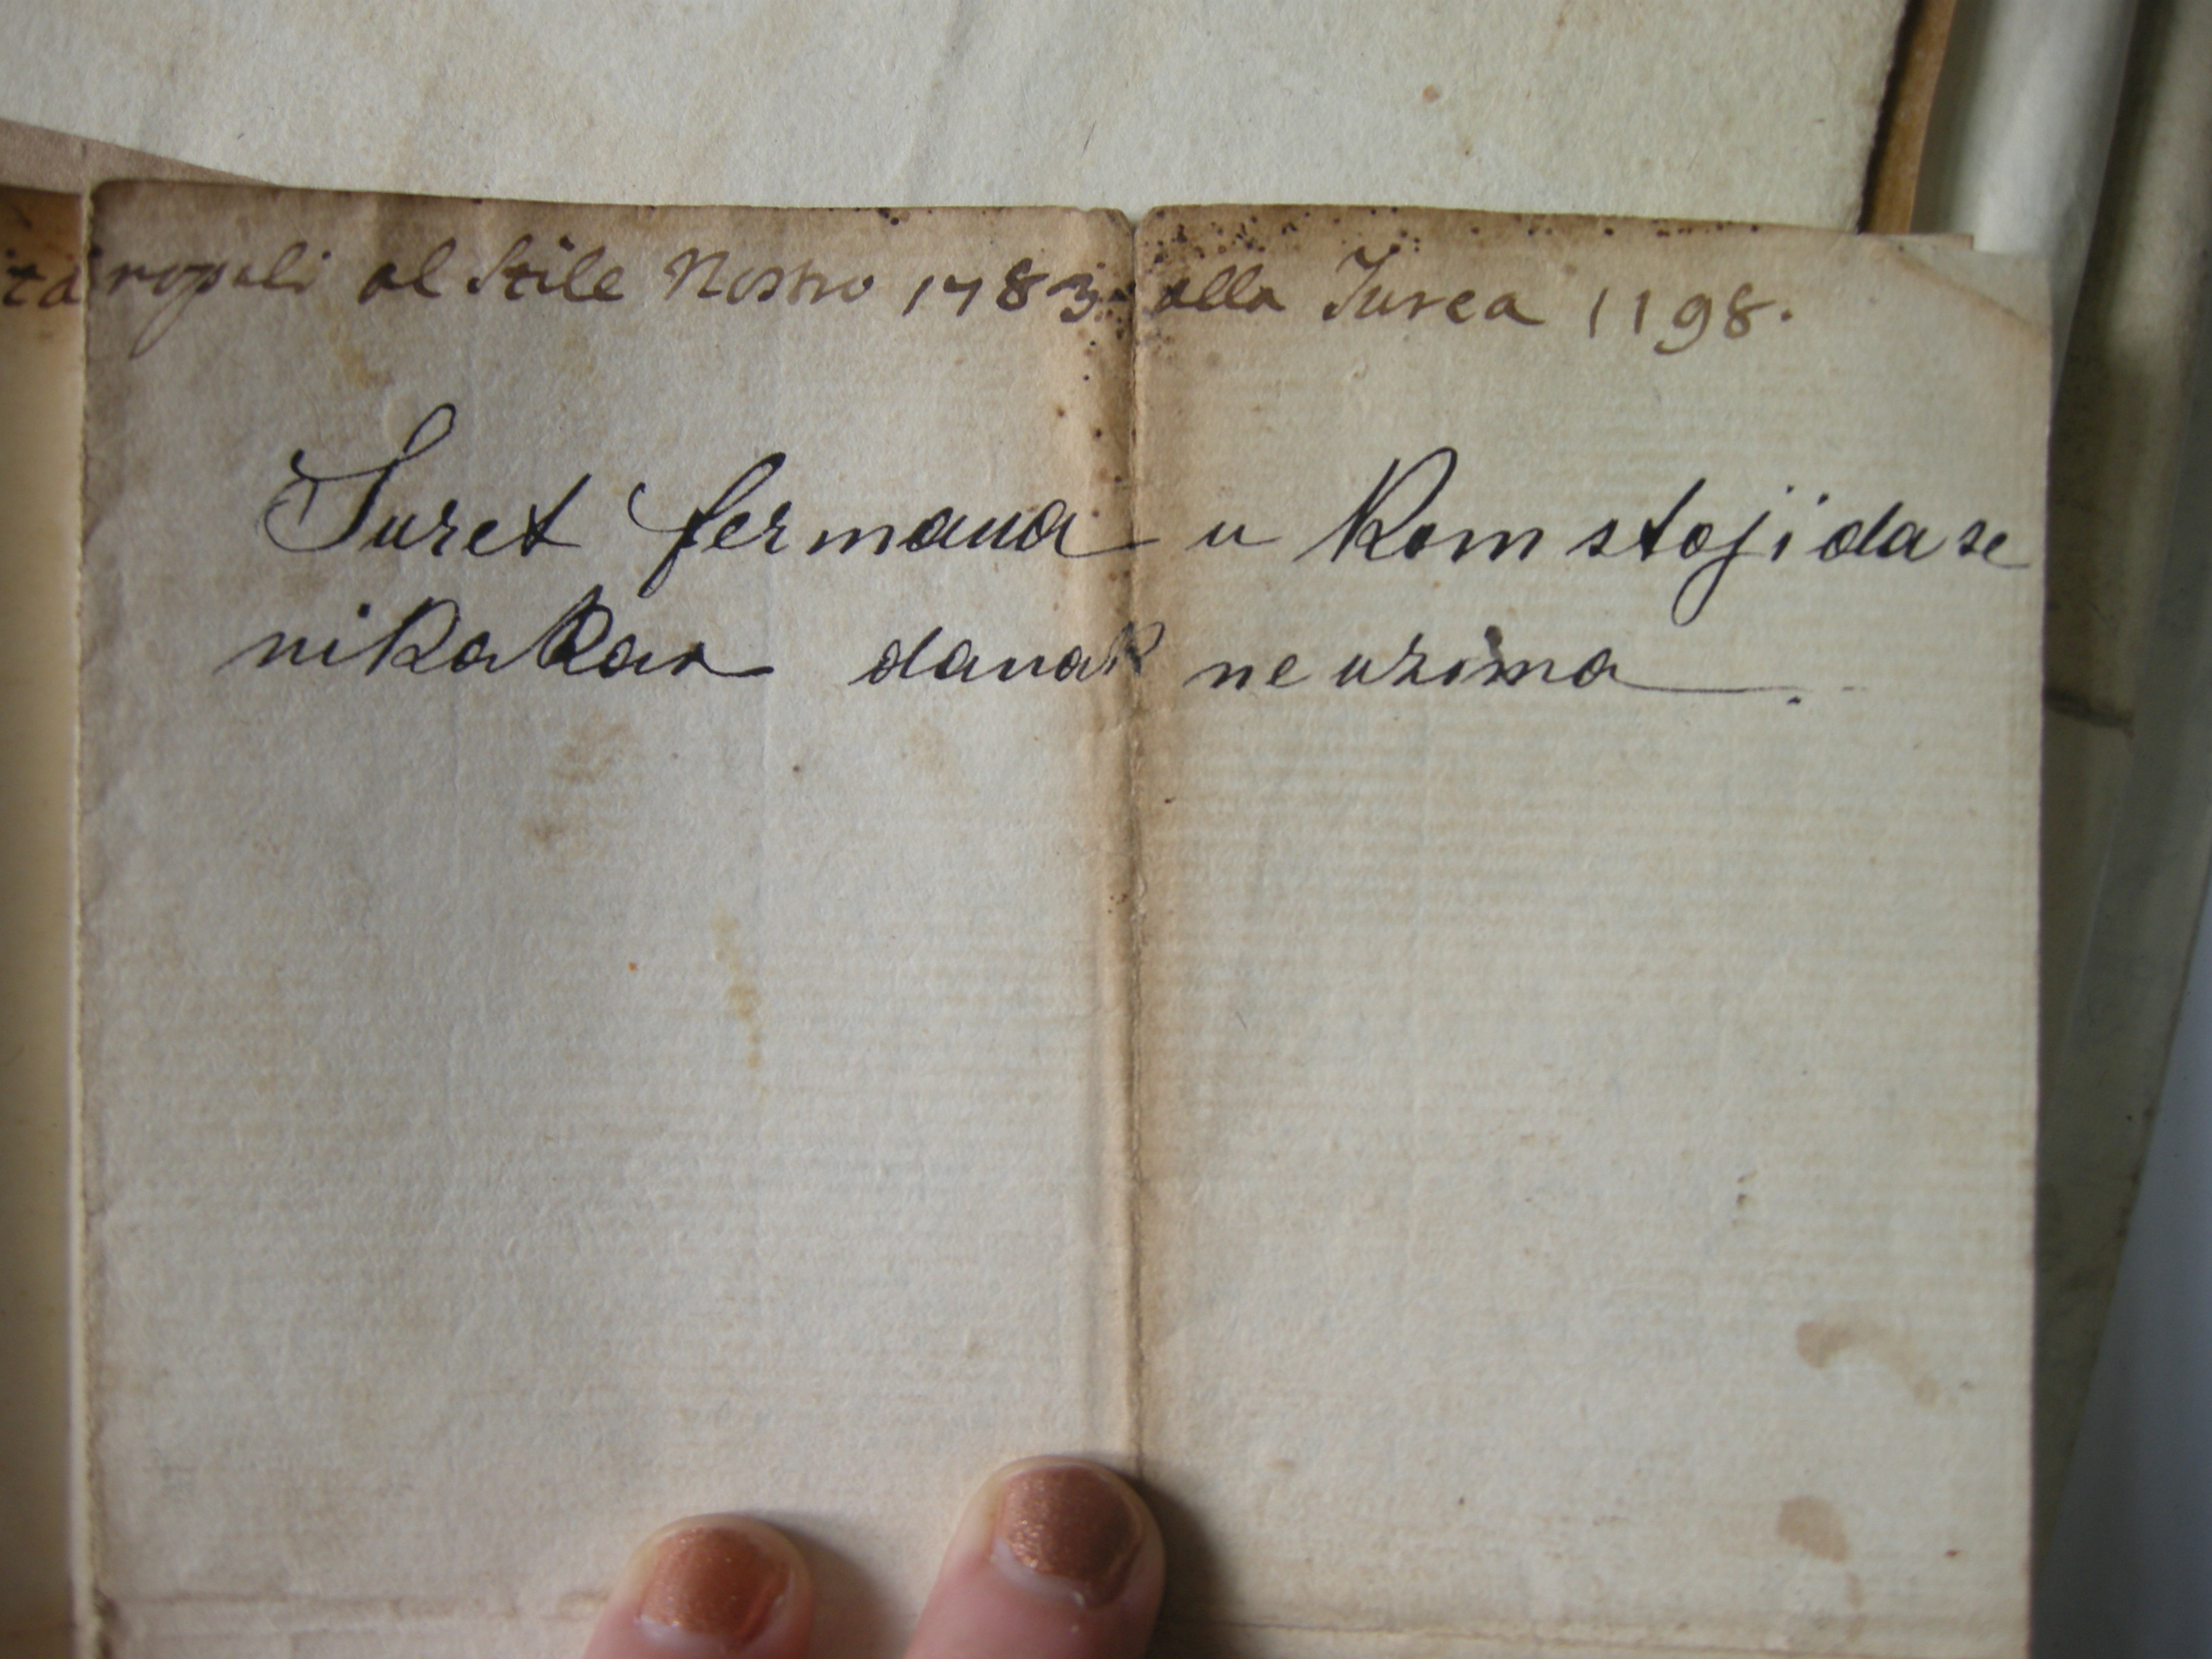 al Stile Nostro 1783. alla Turca 1198.
Suret fermana u kom stoji da se
nikakav danak ne uzima.